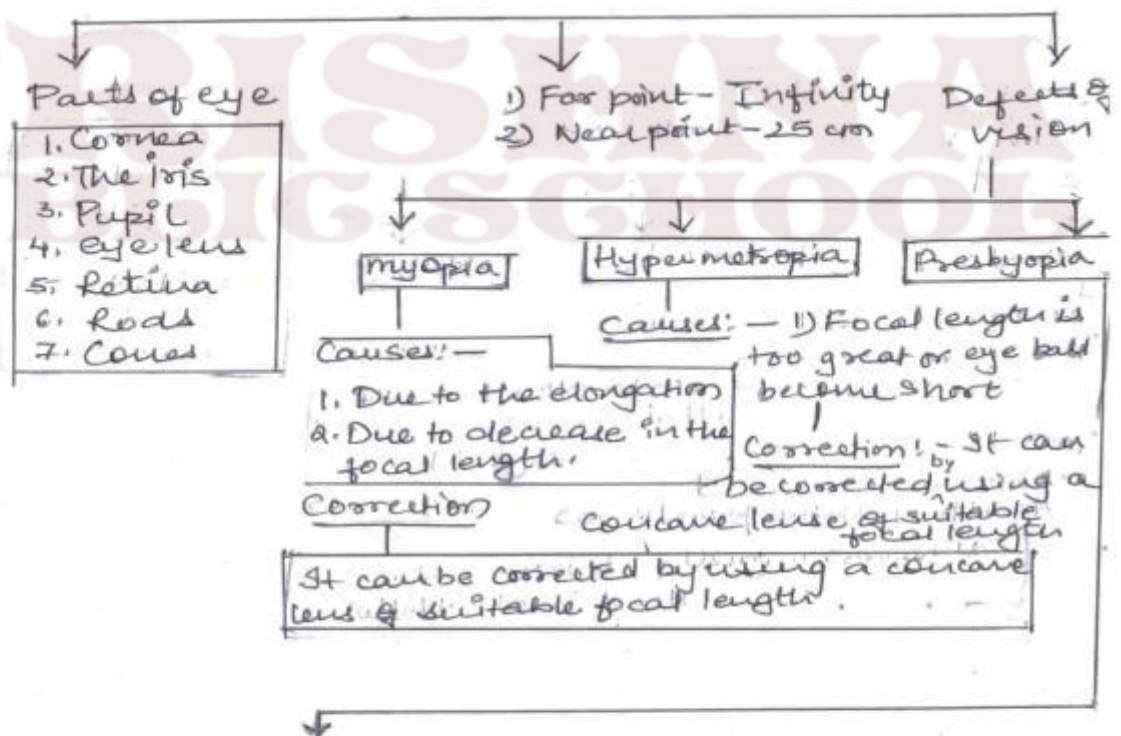 RISHNA
LIC SCHOOL
Parts of eye
1. Cornea
2. The iris
3. Pupil
4. eye lens
5. Retina
6. Rods
7. Cones
1) Far point - Infinity
2) Near point - 25 cm
Defects of
vision
myopia
Causes:-
1. Due to the elongation
2. Due to decrease in the
focal length.
Correction
It can be corrected by using a concave
lens of suitable focal length.
Hypermetropia
Causes: - 1) Focal length is
too great or eye ball
become short
Correction: - It can
be corrected by using a
concave lense of suitable
focal length
Presbyopia